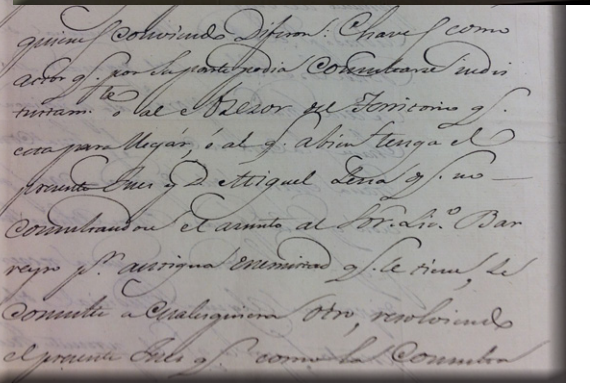 quienes conviniendo Dijeron: Chaves como
actor q.e por su parte podia Consultarse indis
tintam.te ó al Asesor del Territorio q.e
esta para llegár, ó al q.e abien tenga el
presente Jues y D. Miguel Lena q.e no
Consultandose el asunto al Sor. Lic.o Bar
reyro p.r antigua enemistad q.e le tiene, se
Consulte a Cualesquiera otro, resolviendo
el presente Jues q.e como la Consulta